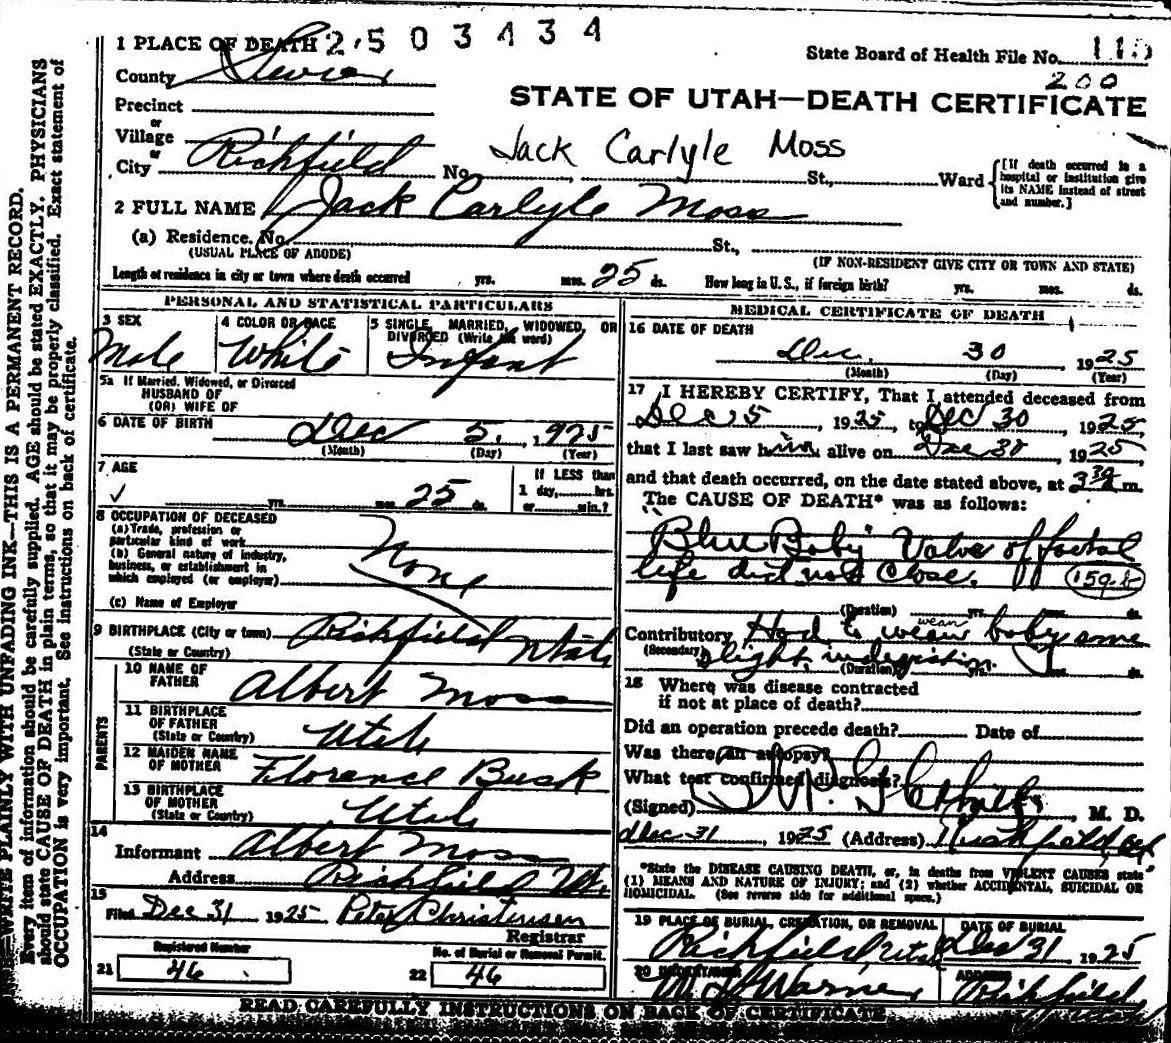 1 PLACE OF DEATH 2503434
State Board of Health File No. 115
County Sevier
200
STATE OF UTAH—DEATH CERTIFICATE
Precinct
or
Village
or
City Richfield No. Jack Carlyle Moss St., Ward
[If death occurred in a hospital or institution give its NAME instead of street and number.]
2 FULL NAME Jack Carlyle Moss
(a) Residence. No. St.,
(USUAL PLACE OF ABODE) (IF NON-RESIDENT GIVE CITY OR TOWN AND STATE)
Length of residence in city or town where death occurred yrs. mos. 25 ds. How long in U. S., if foreign birth? yrs. mos. ds.
PERSONAL AND STATISTICAL PARTICULARS
3 SEX Male
4 COLOR OR RACE White
5 SINGLE, MARRIED, WIDOWED, OR DIVORCED (Write the word) Infant
5a If Married, Widowed, or Divorced
HUSBAND OF
(OR) WIFE OF
6 DATE OF BIRTH Dec 5, 1925
(Month) (Day) (Year)
7 AGE
yrs. mos. 25 ds.
If LESS than
1 day, hrs.
or min.?
8 OCCUPATION OF DECEASED
(a) Trade, profession or
particular kind of work
(b) General nature of industry,
business, or establishment in
which employed (or employer)
None
(c) Name of Employer
9 BIRTHPLACE (City or town) Richfield Utah
(State or Country)
PARENTS
10 NAME OF FATHER Albert Moss
11 BIRTHPLACE OF FATHER Utah
(State or Country)
12 MAIDEN NAME OF MOTHER Florence Busk
13 BIRTHPLACE OF MOTHER Utah
(State or Country)
14
Informant Albert Moss
Address Richfield Ut.
15
Filed Dec 31 1925 Peter Christensen
Registrar
Registered Number
21 46
No. of Burial or Removal Permit.
22 46
MEDICAL CERTIFICATE OF DEATH
16 DATE OF DEATH
Dec. 30 1925
(Month) (Day) (Year)
17 I HEREBY CERTIFY, That I attended deceased from
Dec 5, 1925, to Dec 30 1925
that I last saw him alive on Dec 30, 1925,
and that death occurred, on the date stated above, at m.
The CAUSE OF DEATH* was as follows:
"Blue Baby" Valve of foetal
life did not close. 159.
(Duration) yrs. mos. ds.
Contributory Had to wean baby some
wean
(Secondary) slight indigestion.
(Duration) yrs. ds.
18 Where was disease contracted
if not at place of death?
Did an operation precede death? Date of
Was there an autopsy?
What test confirmed diagnosis?
(Signed) , M. D.
Dec 31, 1925 (Address) Richfield, Ut
*State the DISEASE CAUSING DEATH, or, in deaths from VIOLENT CAUSES state
(1) MEANS AND NATURE OF INJURY; and (2) whether ACCIDENTAL, SUICIDAL OR
HOMICIDAL. (See reverse side for additional space.)
19 PLACE OF BURIAL, CREMATION, OR REMOVAL Richfield Utah
DATE OF BURIAL Dec 31 1925
20 UNDERTAKER Warner
ADDRESS Richfield Utah
READ CAREFULLY INSTRUCTIONS ON BACK OF CERTIFICATE
N. B.—WRITE PLAINLY WITH UNFADING INK—THIS IS A PERMANENT RECORD.
Every item of information should be carefully supplied. AGE should be stated EXACTLY. PHYSICIANS
should state CAUSE OF DEATH in plain terms, so that it may be properly classified. Exact statement of
OCCUPATION is very important. See instructions on back of certificate.